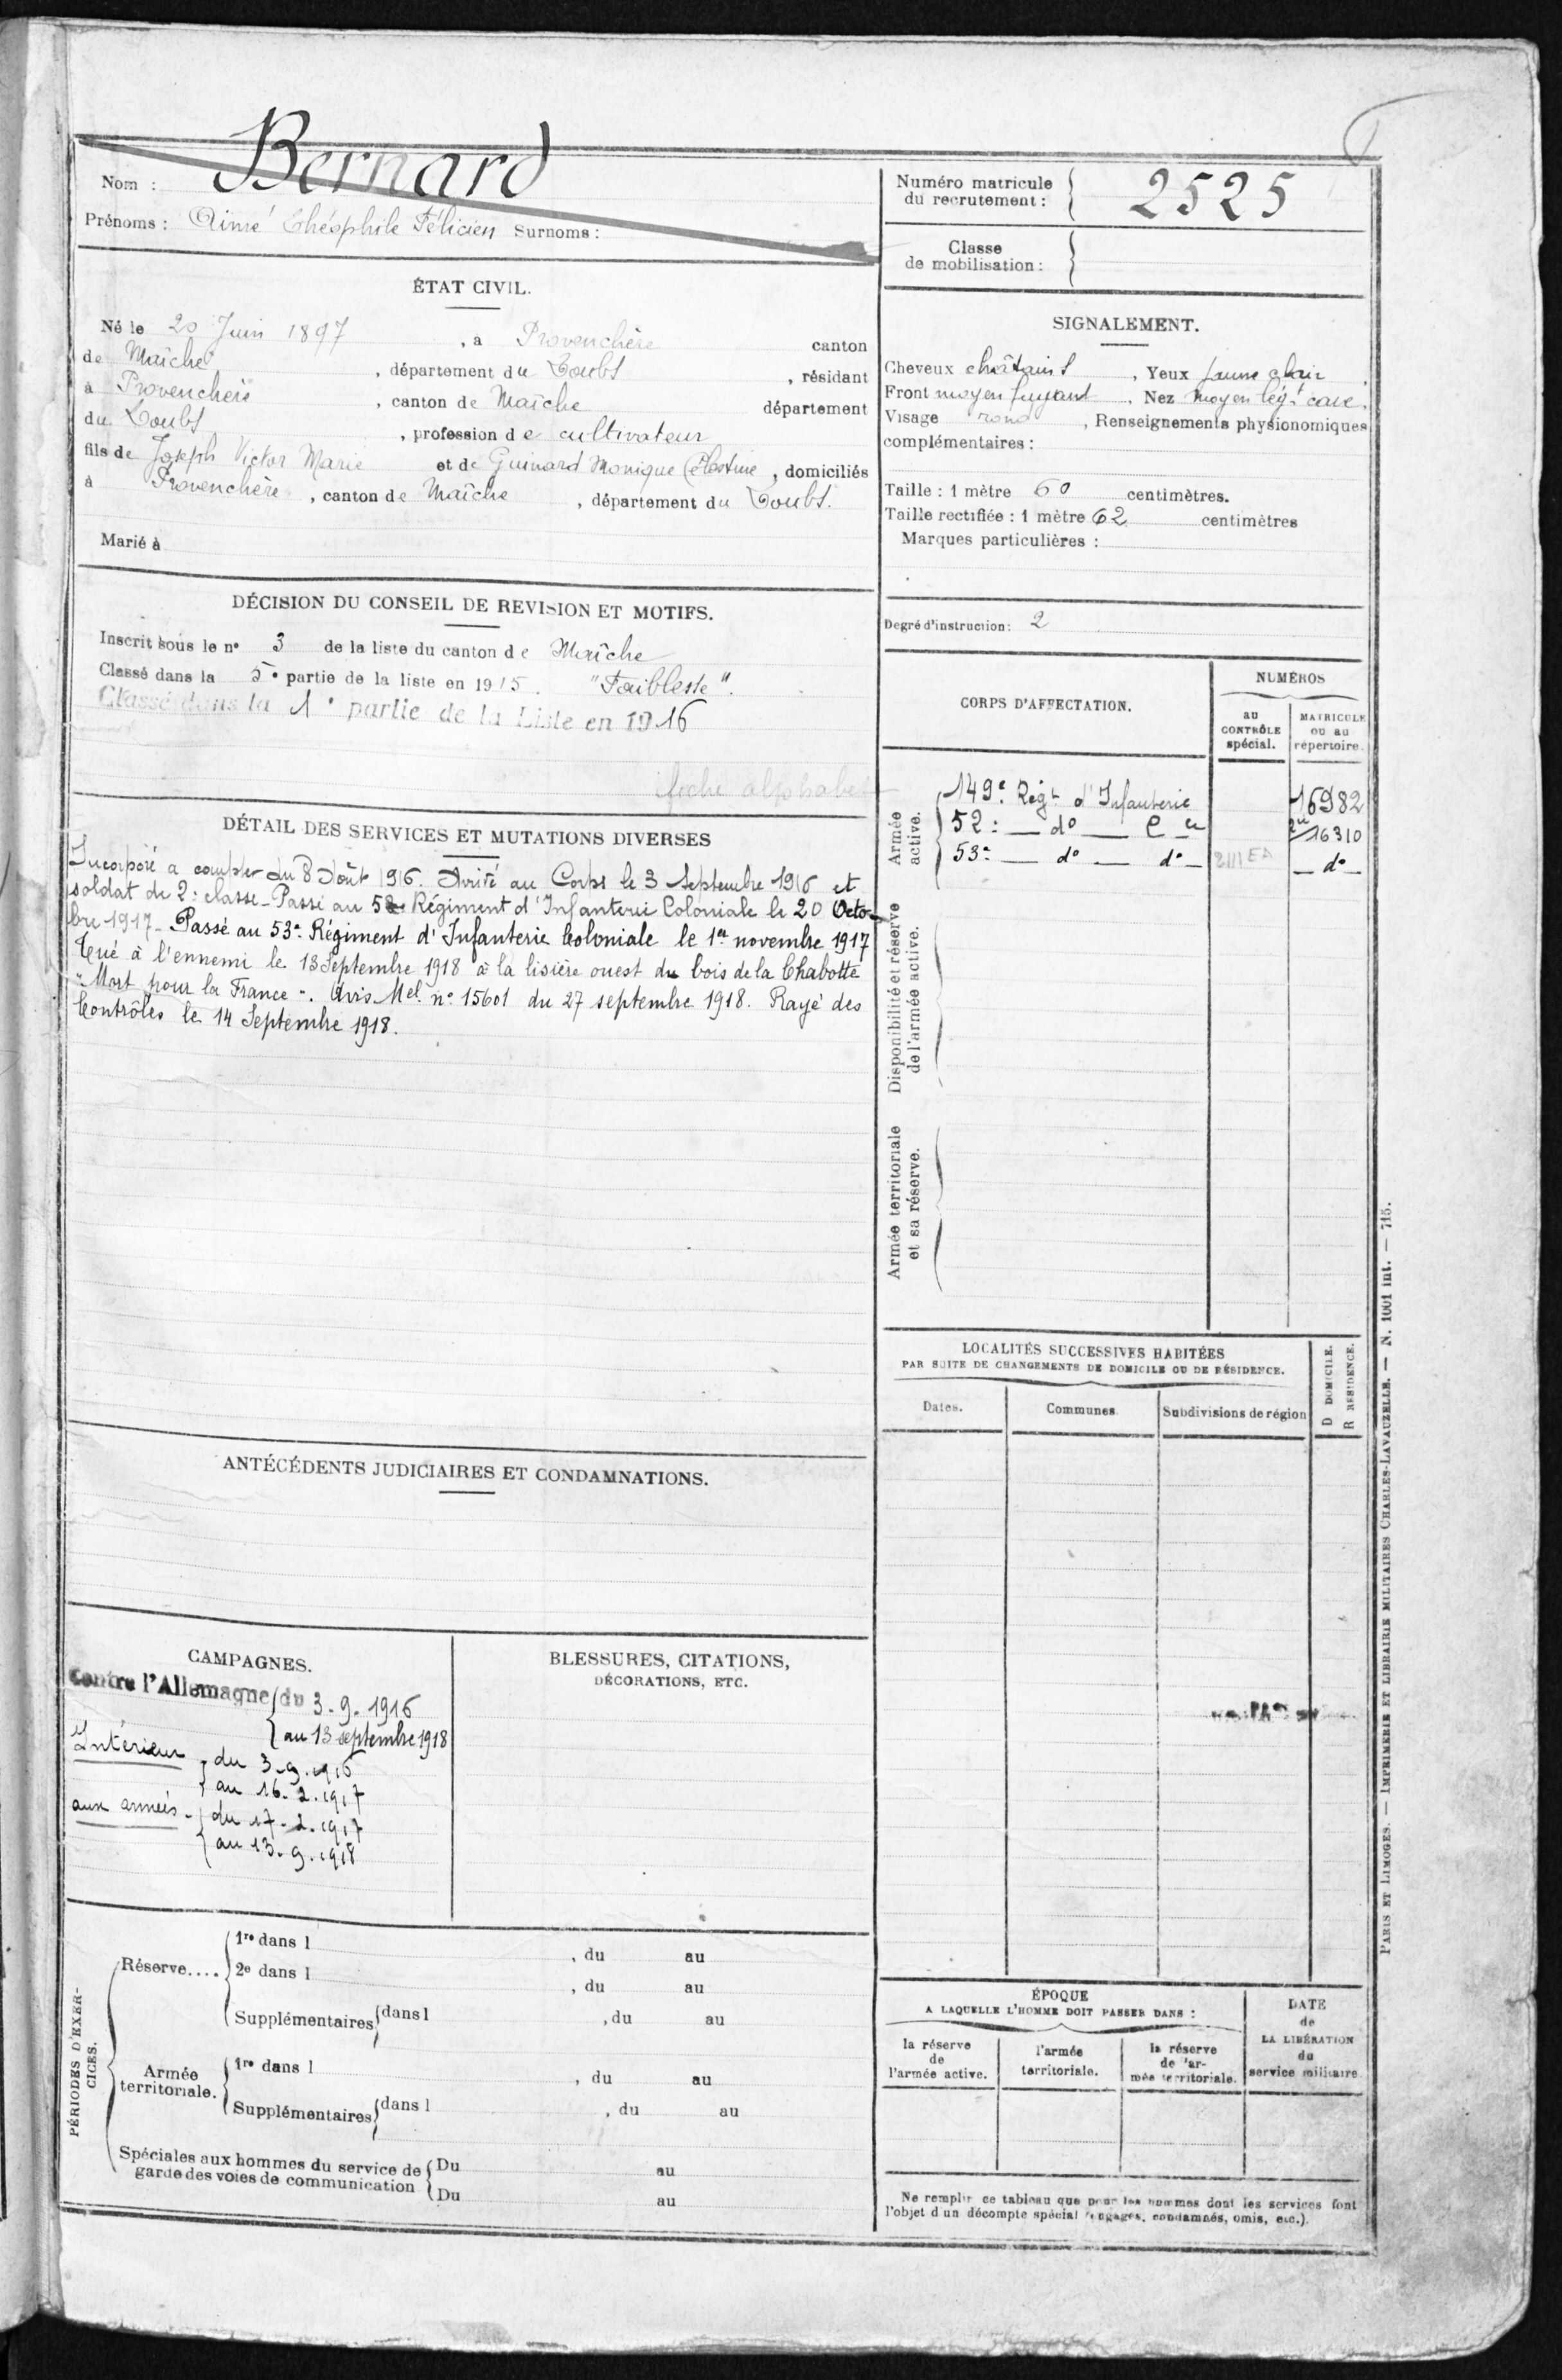 Bernard
Nom :
Prénoms : Aimé Théophile Félicien Surnoms :
ÉTAT CIVIL.
Né le 20 Juin 1897, à Provenchère canton
de Maîche, département du Doubs, résidant
à Provenchère, canton de Maîche département
du Doubs, profession de cultivateur
fils de Joseph Victor Marie et de Guinard Monique Célestine, domiciliés
à Provenchère, canton de Maîche, département du Doubs.
Marié à
DÉCISION DU CONSEIL DE REVISION ET MOTIFS.
Inscrit sous le n° 3 de la liste du canton de Maîche
Classé dans la 5e partie de la liste en 1915. "Faiblesse".
Classé dans la 1e partie de la Liste en 1916
fiche alphabet
DÉTAIL DES SERVICES ET MUTATIONS DIVERSES
Incorporé à compter du 8 Août 1916. Arrivé au Corps le 3 Septembre 1916 et
soldat de 2e classe - Passé au 52e Régiment d'Infanterie Coloniale le 20 Octo-
bre 1917 - Passé au 53e Régiment d'Infanterie Coloniale le 1er novembre 1917
Tué à l'ennemi le 13 Septembre 1918 à la lisière ouest du bois de la Chabotte
"Mort pour la France". Avis Mel n° 15601 du 27 septembre 1918. Rayé des
Contrôles le 14 Septembre 1918.
ANTÉCÉDENTS JUDICIAIRES ET CONDAMNATIONS.
CAMPAGNES.
Contre l'Allemagne du 3.9.1916
au 13 septembre 1918
Intérieur du 3.9.1916
au 16.2.1917
aux armées - du 17.2.1917
au 13.9.1918
BLESSURES, CITATIONS,
DÉCORATIONS, ETC.
PÉRIODES D'EXER-
CICES.
Réserve....
1re dans l , du au
2e dans l , du au
Supplémentaires dans l , du au
Armée
territoriale.
1re dans l , du au
Supplémentaires dans l , du au
Spéciales aux hommes du service de
garde des voies de communication
Du au
Du au
Numéro matricule
du recrutement : 2525
Classe
de mobilisation :
SIGNALEMENT.
Cheveux châtains, Yeux jaune clair
Front moyen fuyant, Nez moyen légt cave.
Visage rond, Renseignements physionomiques
complémentaires :
Taille : 1 mètre 60 centimètres.
Taille rectifiée : 1 mètre 62 centimètres
Marques particulières :
Degré d'instruction : 2
CORPS D'AFFECTATION.
NUMÉROS
AU
CONTRÔLE
spécial.
MATRICULE
OU AU
répertoire.
Armée
active.
149e Régt d'Infanterie 16982
52e — do — Cle 16310
53e — do — do — — do —
Disponibilité et réserve
de l'armée active.
Armée territoriale
et sa réserve.
LOCALITÉS SUCCESSIVES HABITÉES
PAR SUITE DE CHANGEMENTS DE DOMICILE OU DE RÉSIDENCE.
Dates.
Communes.
Subdivisions de région
D DOMICILE.
R RÉSIDENCE.
ÉPOQUE
A LAQUELLE L'HOMME DOIT PASSER DANS :
la réserve
de
l'armée active.
l'armée
territoriale.
la réserve
de l'ar-
mée territoriale.
DATE
de
LA LIBÉRATION
du
service militaire
Ne remplir ce tableau que pour les hommes dont les services font
l'objet d'un décompte spécial (engagés, condamnés, omis, etc.).
PARIS ET LIMOGES. — IMPRIMERIE ET LIBRAIRIE MILITAIRES CHARLES-LAVAUZELLE. — N. 1001 int. — 715.